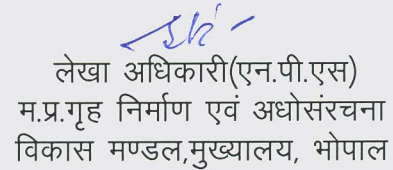 लेखा अधिकारी(एन.पी.एस)
म.प्र.गृह निर्माण एवं अधोसंरचना
विकास मण्डल,मुख्यालय, भोपाल